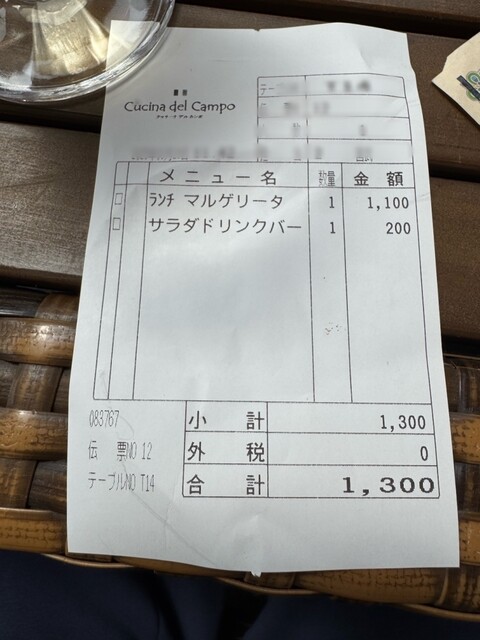 Cucina del Campo
メニュー名 数量 金額
ﾗﾝﾁ マルゲリータ 1 1,100
サラダドリンクバー 1 200
083767
小計 1,300
伝票NO 12
外税 0
テーブルNO T14
合計 1,300